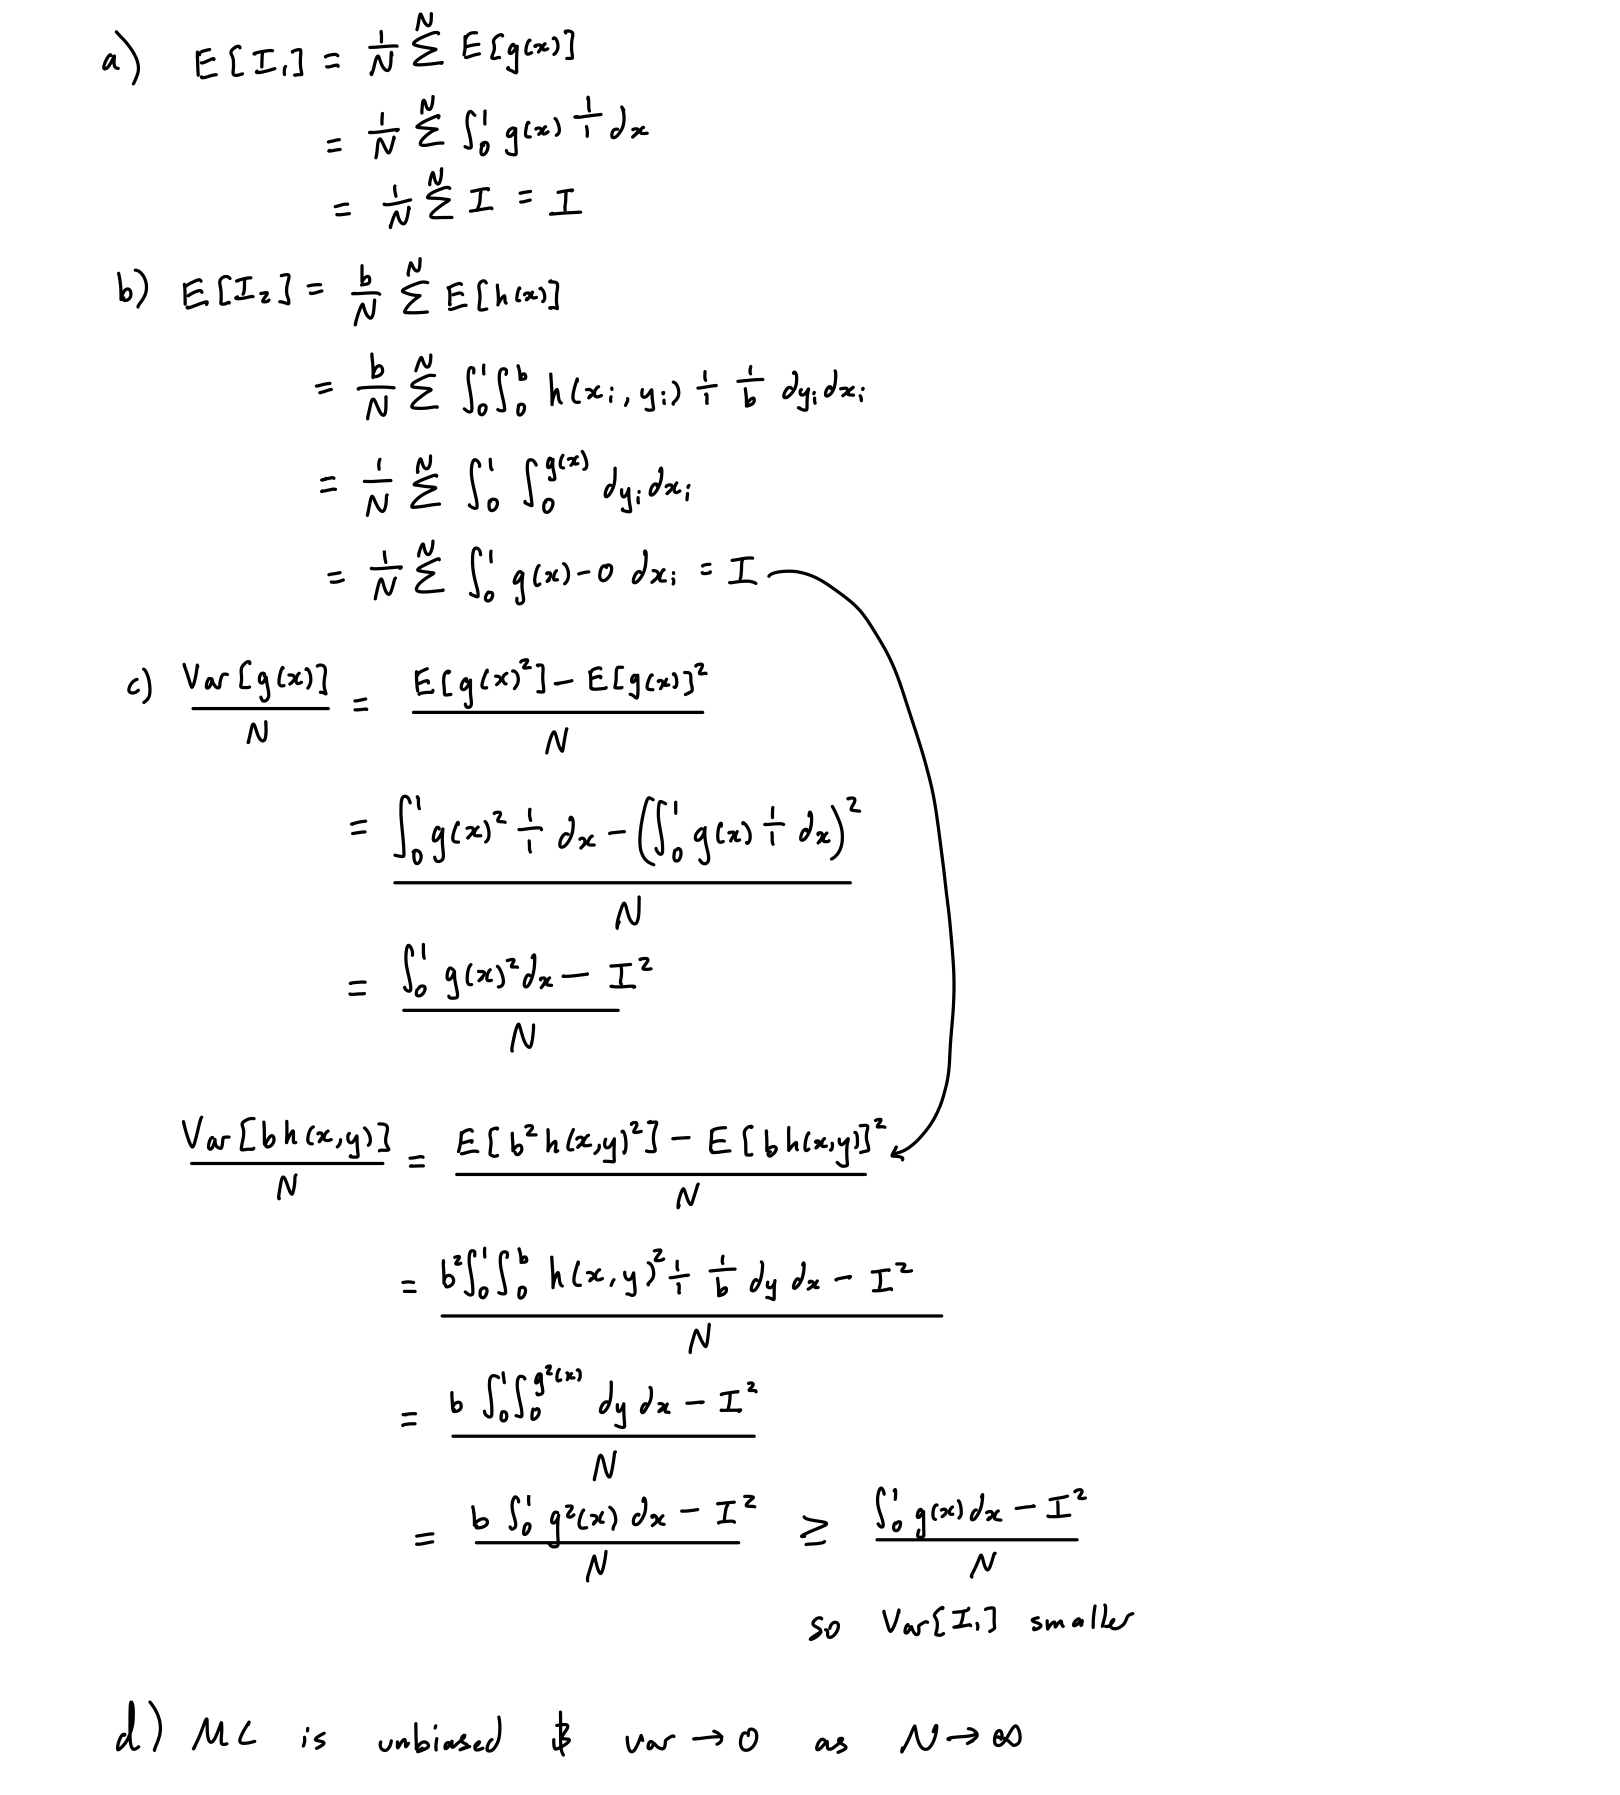 a) E[I₁] = 1/N Σ^N E[g(x)]
= 1/N Σ^N ∫₀¹ g(x) 1/1 dx
= 1/N Σ^N I = I
b) E[I₂] = b/N Σ^N E[h(x)]
= b/N Σ^N ∫₀¹ ∫₀ᵇ h(xᵢ, yᵢ) 1/1 1/b dyᵢ dxᵢ
= 1/N Σ^N ∫₀¹ ∫₀^g(x) dyᵢ dxᵢ
= 1/N Σ^N ∫₀¹ g(x) - 0 dxᵢ = I
c) Var[g(x)]/N = (E[g(x)²] - E[g(x)]²)/N
= (∫₀¹ g(x)² 1/1 dx - (∫₀¹ g(x) 1/1 dx)²)/N
= (∫₀¹ g(x)² dx - I²)/N
Var[b h(x,y)]/N = (E[b² h(x,y)²] - E[b h(x,y)]²)/N
= (b² ∫₀¹ ∫₀ᵇ h(x,y)² 1/1 1/b dy dx - I²)/N
= (b ∫₀¹ ∫₀^g²(x) dy dx - I²)/N
= (b ∫₀¹ g²(x) dx - I²)/N ≥ (∫₀¹ g(x) dx - I²)/N
so Var[I₁] smaller
d) MC is unbiased & var → 0 as N → ∞